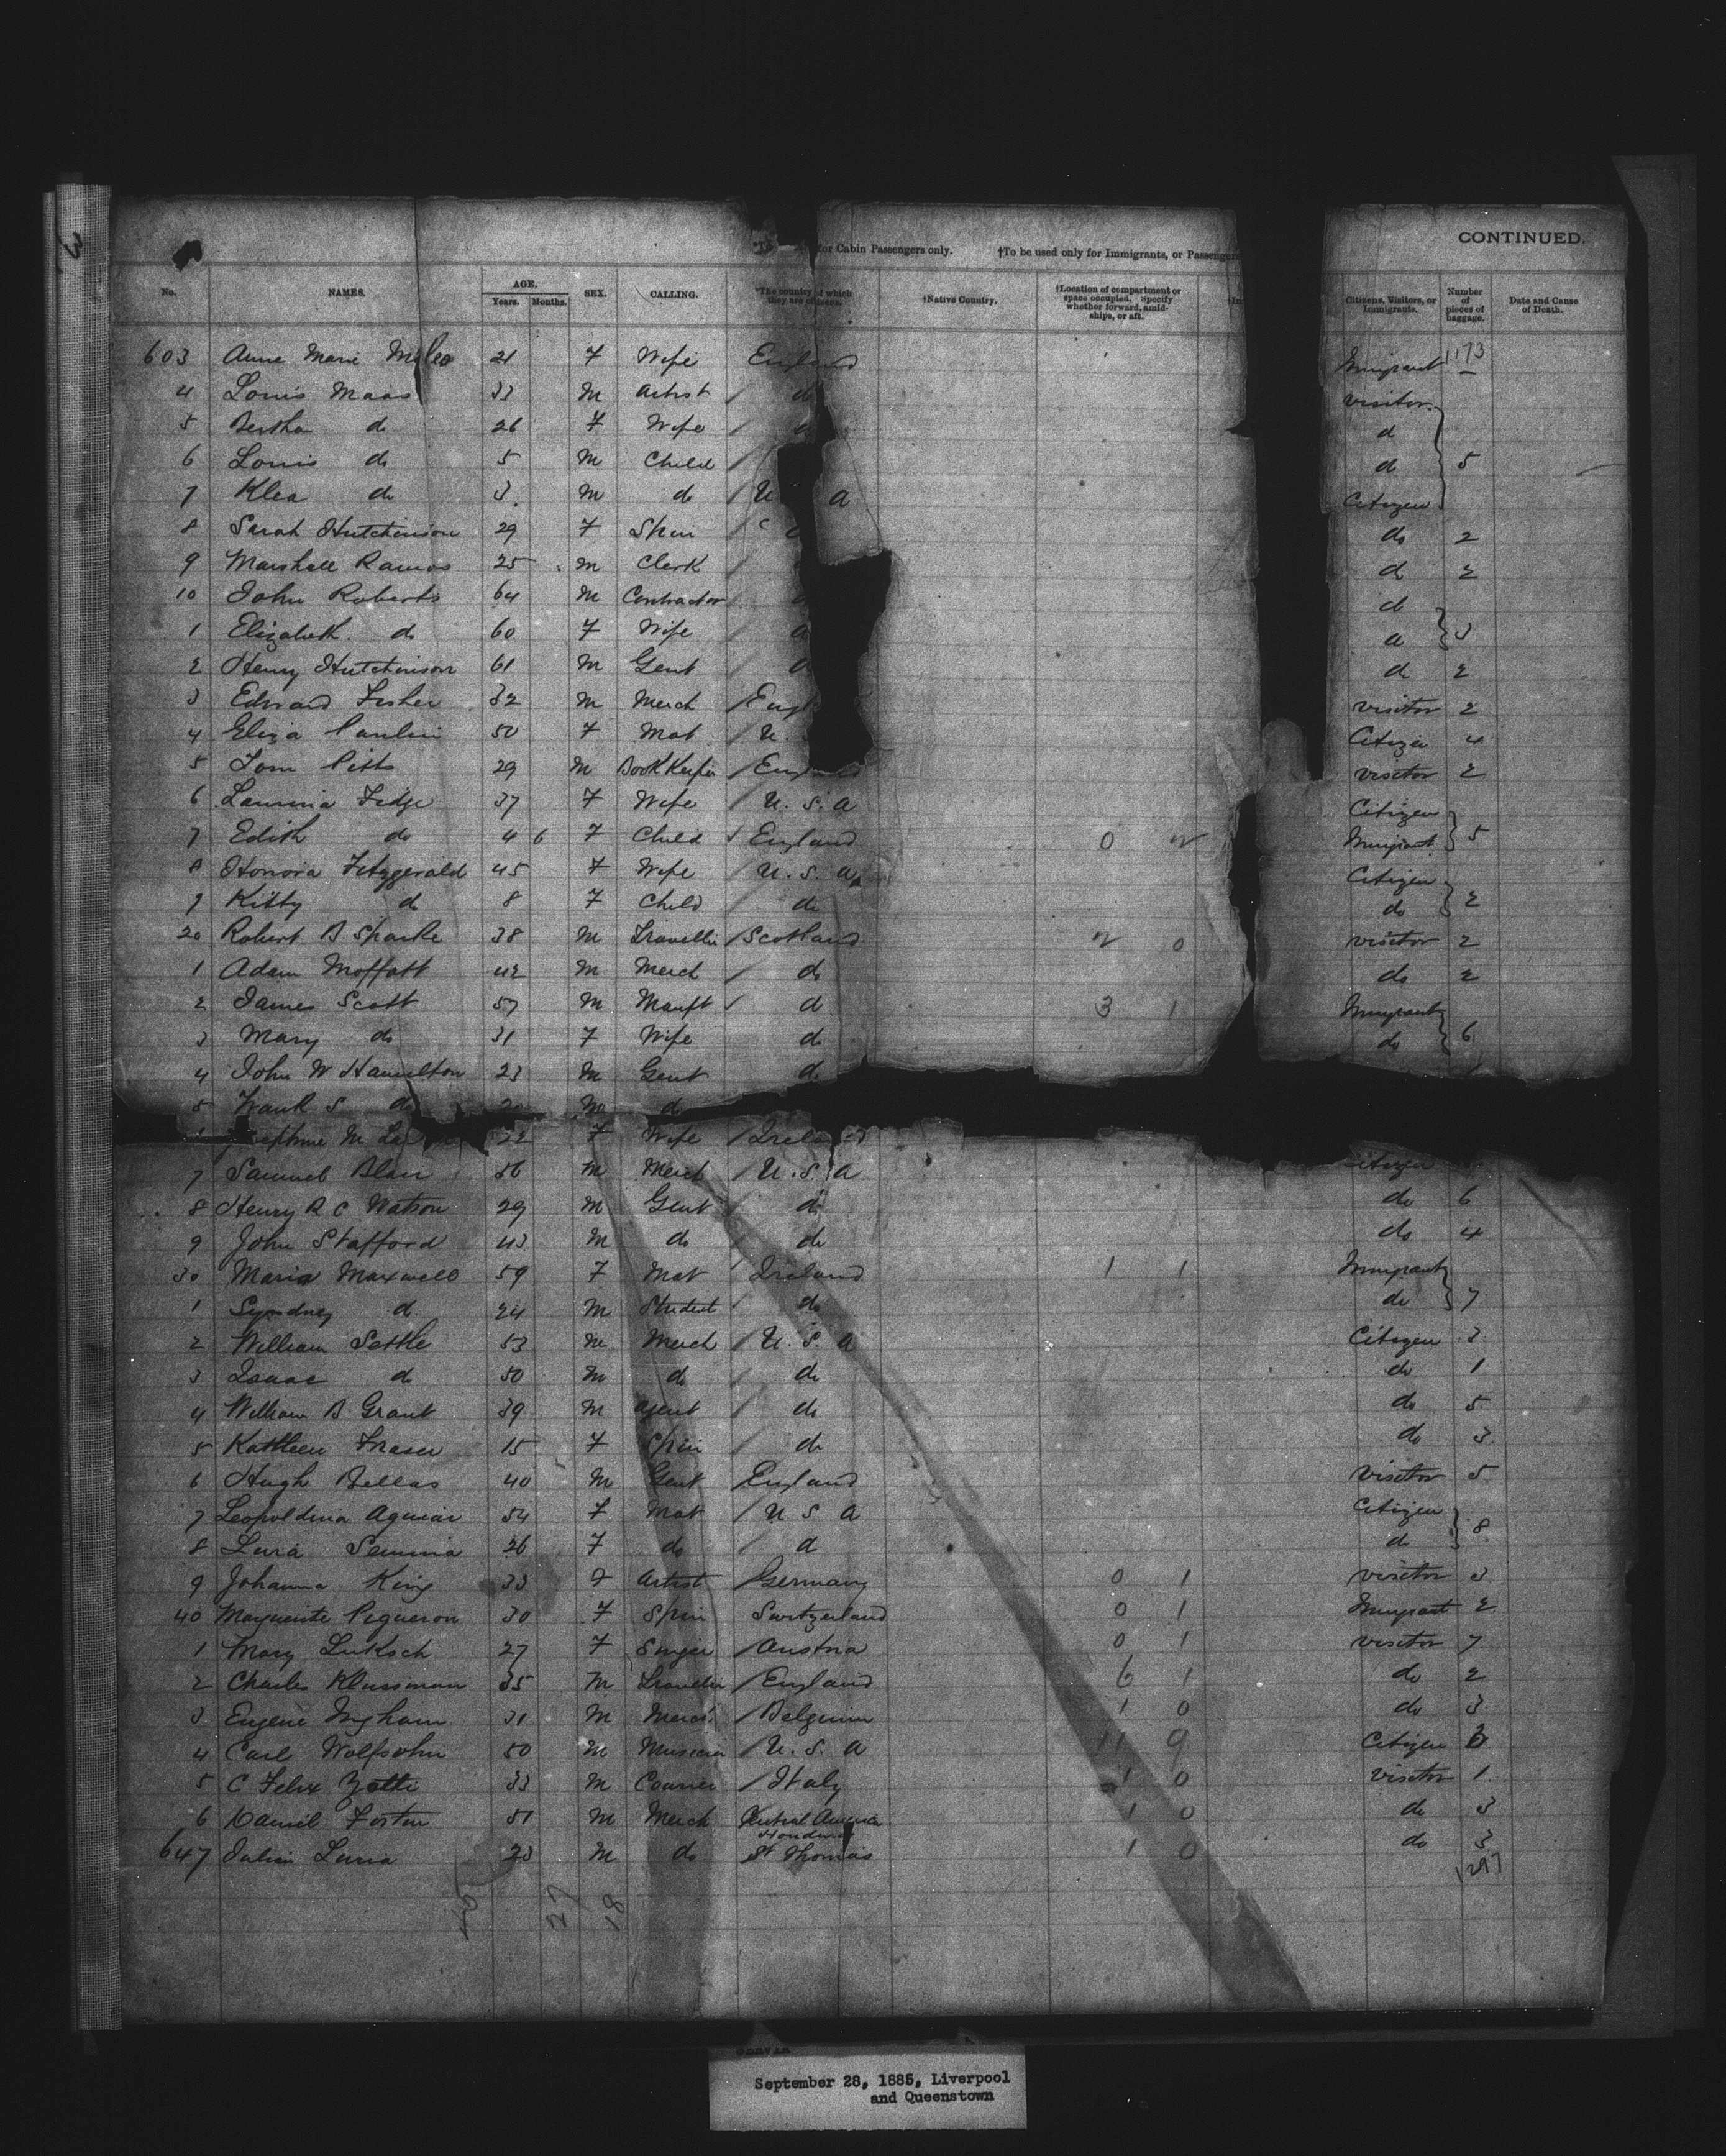 CONTINUED.
for Cabin Passengers only. †To be used only for Immigrants, or Passengers
No. NAMES. AGE. Years. Months. SEX. CALLING. *The country of which they are citizens. †Native Country. †Location of compartment or space occupied. Specify whether forward, amidships, or aft. Citizens, Visitors, or Immigrants. Number of pieces of baggage. Date and Cause of Death.
603 Anne Marie 21 F Wife England Immigrant 1173
4 Louis Maas 33 M Artist / do visitor
5 Bertha do 26 F Wife / d
6 Louis do 5 M Child / do 5
7 Klea do 3 M do / U A Citizen
8 Sarah Hutchinson 29 F Spin / do 2
9 Marshall Ramos 25 M Clerk / do 2
10 John Roberts 64 M Contractor / d
1 Elizabeth do 60 F Wife / d 3
2 Henry Hutchinson 61 M Gent / do 2
3 Edward Fisher 32 M Merch / Engl visitor 2
4 Eliza 50 F Mat / U. Citizen 4
5 Tom Pitts 29 M Book Keeper / England visitor 2
6 Fidge 37 F Wife / U. S. A Citizen
7 Edith do 4 6 F Child / England 0 Immigrant 5
8 Honora Fitzgerald 45 F Wife / U. S. A Citizen
9 Kitty do 8 F Child / do do 2
20 Robert B Sparke 38 M Traveller / Scotland 0 visitor 2
1 Adam Moffatt 42 M Merch / do do 2
2 James Scott 57 M Manft / d 3 1 Immigrant
3 Mary do 31 F Wife do do 6
4 John W Hamilton 23 M Gent do
5 Frank S do M d
22 F Wife / Ireland
7 Samuel Blair 56 M Merch / U. S. A Citizen
8 Henry R C Watson 29 M Gent do do 6
9 John Stafford 43 M do do do 4
30 Maria Maxwell 59 F Mat Ireland 1 1 Immigrant
1 Syndney d 24 M Student / do do 7
2 William Settle 53 M Merch / U. S. A Citizen 3
3 Isaac do 50 M do / do do 1
4 William B Grant 39 M agent / do do 5
5 Kathleen Fraser 15 F Spin / do do 3
6 Hugh Bellas 40 M Gent England visitor 5
7 Leopoldina Aguiar 54 F Mat / U S A Citizen
8 26 F do / d d 8
9 Johanna King 33 F Artist / Germany 0 1 visitor 3
40 Marguerite 30 F Spin Switzerland 0 1 Immigrant 2
1 Mary Luksch 27 F Singer / Austria 0 1 visitor 7
2 Charles Klussman 35 M Traveller / England 6 1 do 2
3 Eugene Ingham 31 M Merch / Belgium 1 0 do 3
4 Carl Wolfsohn 50 M Musician / U. S. A 11 9 Citizen 3
5 C Felix Zotti 33 M Courier / Italy 1 0 visitor 1
6 Daniel 51 M Merch Central America 1 0 do 3
Honduras
647 Julian Luria 23 M do St Thomas 1 0 do 3
1297
27 18
September 28, 1885, Liverpool
and Queenstown